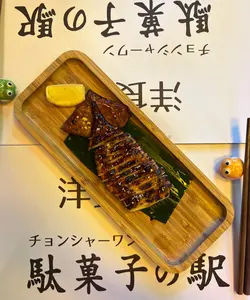 駄菓子の駅
チョンシャーワン
洋食
洋
チョンシャーワン
駄菓子の駅